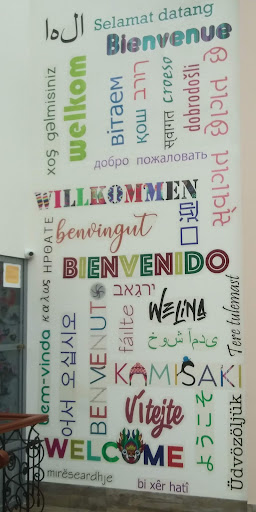 Selamat datang
Bienvenue
xoş gəlmisiniz
welkom
вітаем
croeso
स्वागत
dobrodošli
добро пожаловать
WILLKOMMEN
स्वागत
καλως ΗΡΘΑΤΕ
benvingut
迎
BIENVENIDO
BENVENUTO
fáilte
WELINA
Tere tulemast
bem-vinda
어서 오십시오
KAMISAKI
Vítejte
ようこそ
Üdvözöljük
WELCOME
mirëseardhje
bi xêr hatî